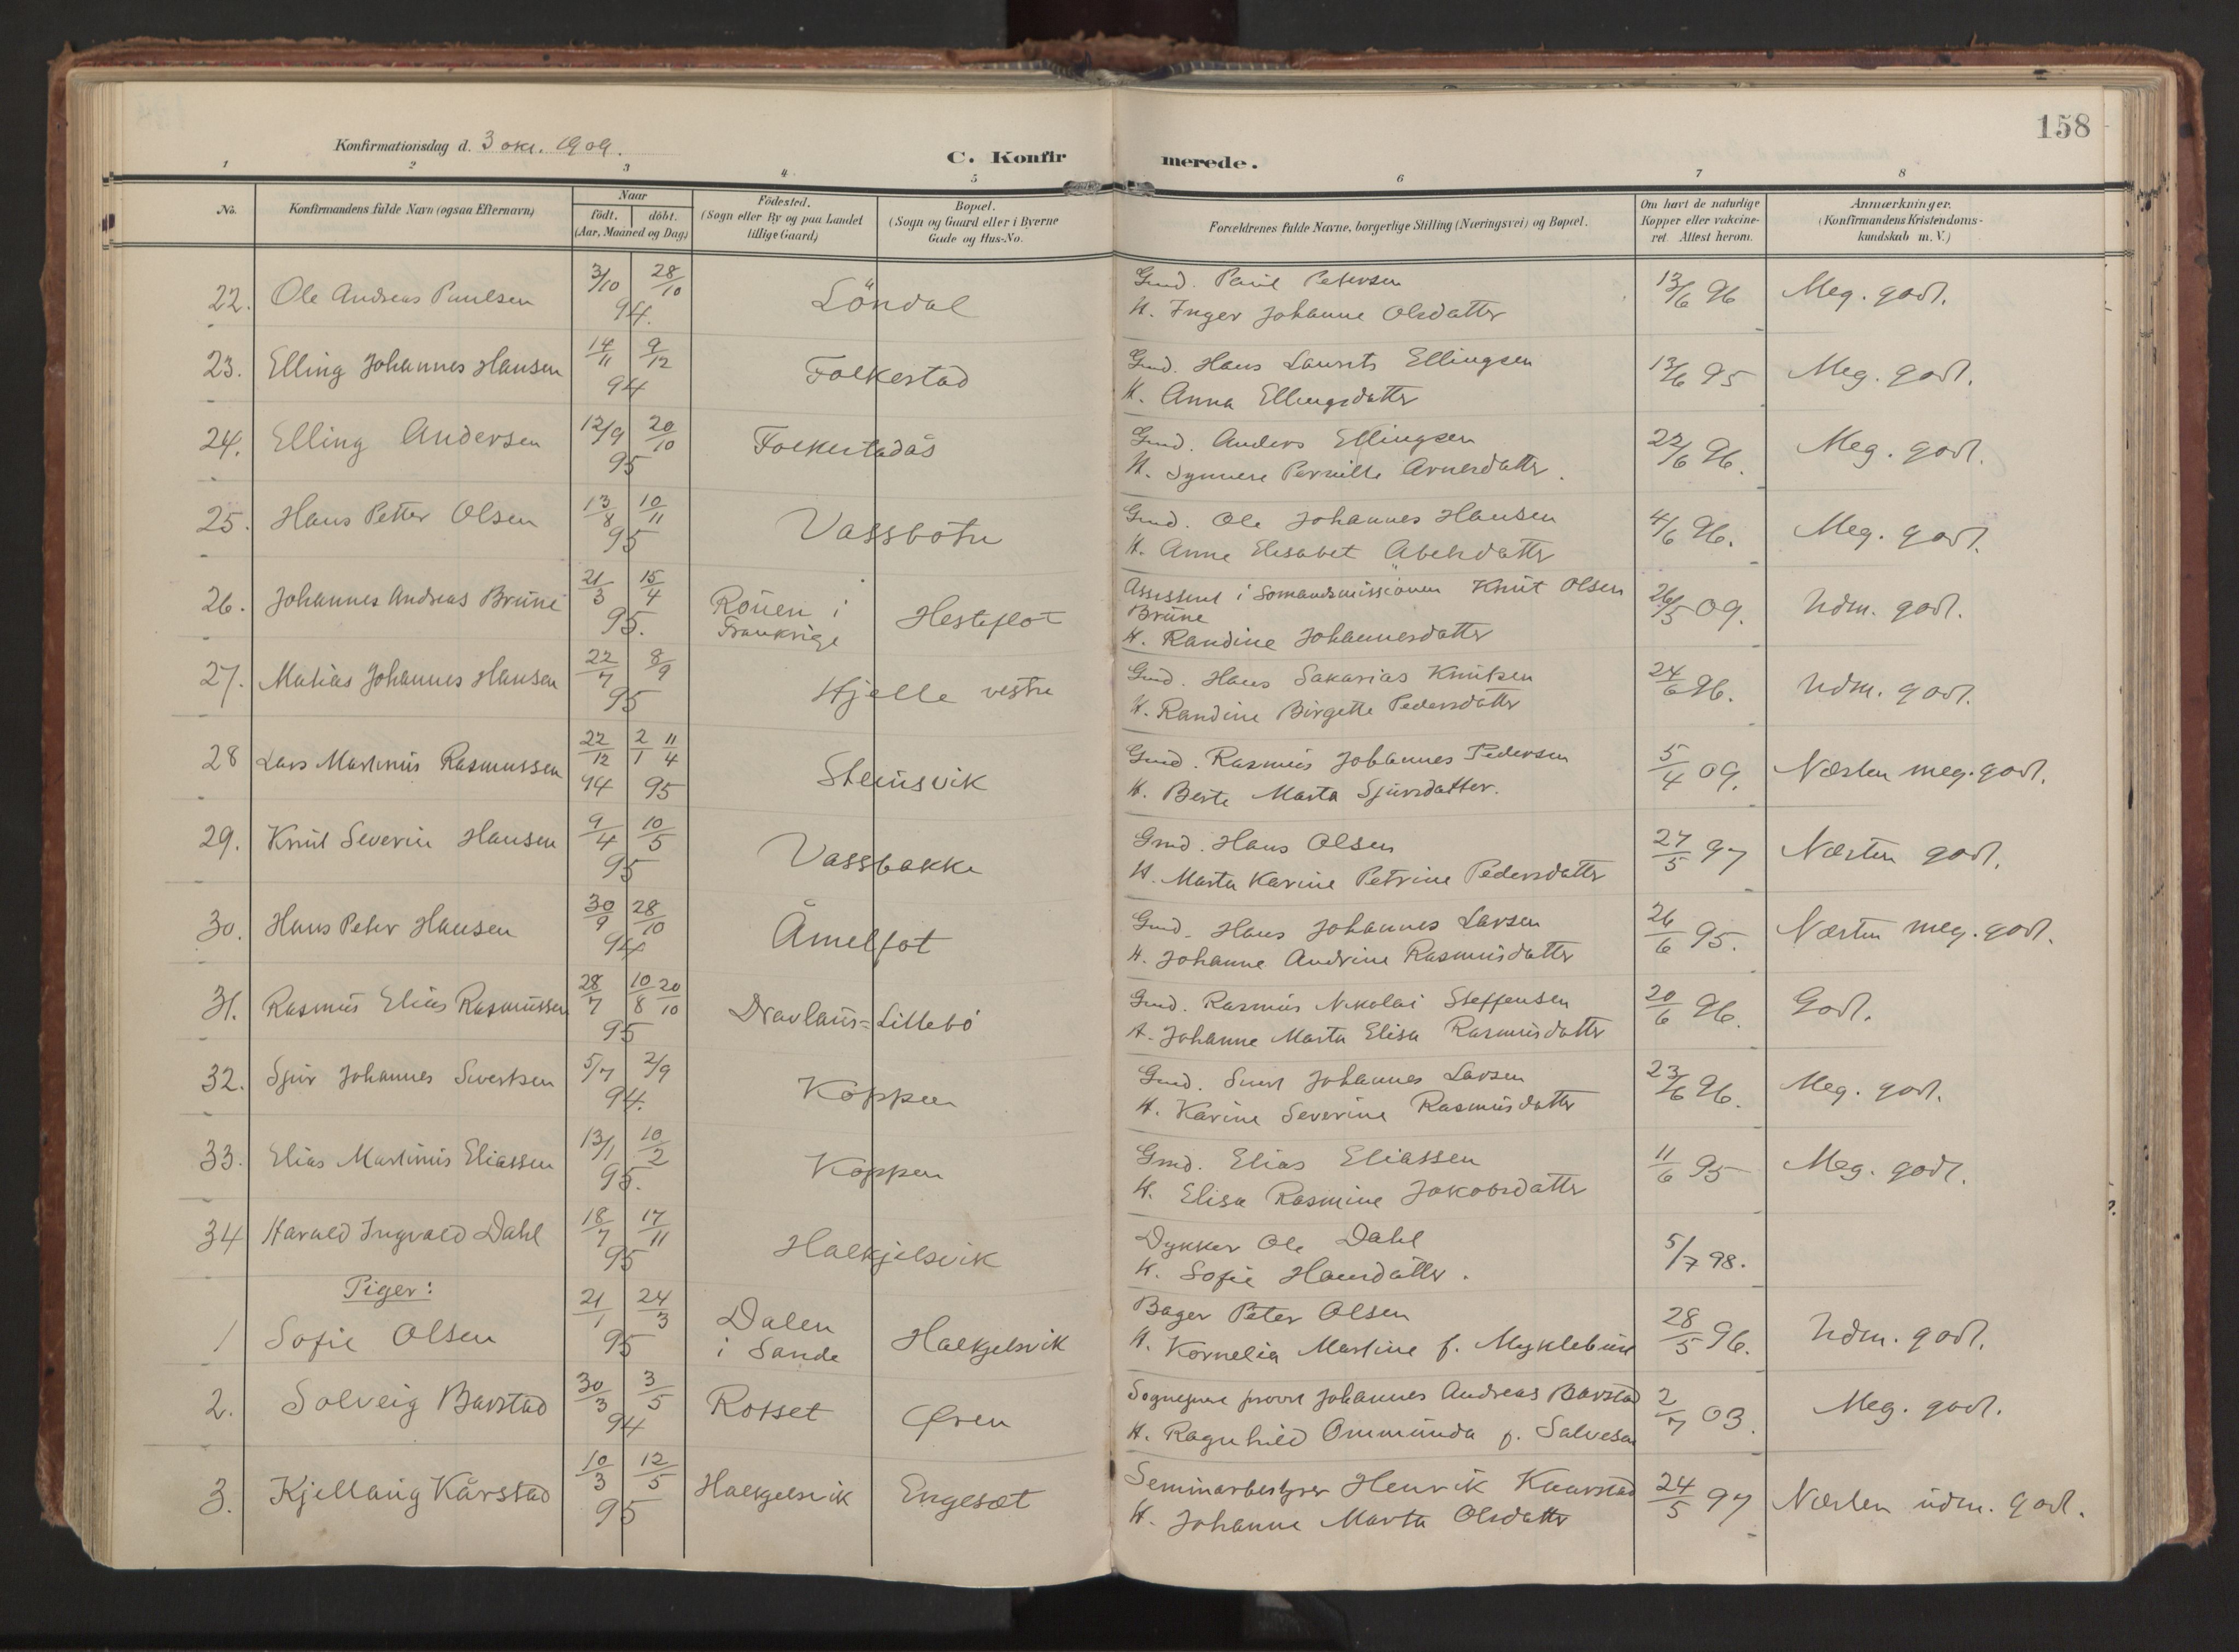 158
Konfirmationsdag d. 3 okt. 1909.
C. Konfirmerede.
1 2 3 4 5 6 7 8
No.
Konfirmandens fulde Navn (ogsaa Efternavn)
Naar
födt. döbt.
(Aar, Maaned og Dag)
Födested.
(Sogn eller By og paa Landet
tillige Gaard)
Bopæl.
(Sogn og Gaard eller i Byerne
Gade og Hus-No.
Forældrenes fulde Navne, borgerlige Stilling (Næringsvei) og Bopæl.
Om havt de naturlige
Kopper eller vakcine-
ret. Attest herom.
Anmærkninger.
(Konfirmandens Kristendoms-
kundskab m. V.)
22. Ole Andreas Paulsen 3/10 28/10 94. Löndal Gmd. Paul Petersen 13/6 96 Meg. godt.
H. Inger Johanne Olsdatter
23. Elling Johannes Hansen 14/11 9/12 94 Folkestad Gmd. Hans Laurits Ellingsen 13/6 95 Meg. godt.
H. Anna Ellingsdatter
24. Elling Andersen 12/9 20/10 95 Folkestadås Gmd. Anders Ellingsen 22/6 96. Meg. godt.
H. Synnere Pernille Arnesdatter.
25. Hans Petter Olsen 13/8 10/11 95 Vassbotn Gmd. Ole Johannes Hansen 4/6 96. Meg. godt.
H. Anne Elisabet Abelsdatter
26. Johannes Andreas Brune 21/3 15/4 95. Rouen i Frankrige Hesteflot Assistent i Somandsmissionen Knut Olsen 26/5 09. Udm. godt.
Brune
H. Randine Johannesdatter
27. Matias Johannes Hansen 22/7 8/9 95 Hjelle vestre Gmd. Hans Sakarias Knutsen 24/6 96. Udm. godt.
H. Randine Birgette Pedersdatter
28 Lars Martinus Rasmussen 22/12 94 2/1 11/4 95 Steinsvik Gmd. Rasmus Johannes Pedersen 5/4 09. Næsten meg. godt.
H. Berte Marta Sjursdatter.
29. Knut Severin Hansen 9/4 10/5 95 Vassbakke Gmd. Hans Olsen 27/5 97 Næsten godt.
H. Marta Karine Petrine Pedersdatter
30. Hans Peter Hansen 30/9 28/10 94 Åmelfot Gmd. Hans Johannes Larsen 26/6 95. Næsten meg. godt.
H. Johanne Andrine Rasmusdatter
31. Rasmus Elias Rasmussen 28/7 10/8 20/10 95 Dravlaus-Lillebö Gmd. Rasmus Nikolai Steffensen 20/6 96. Godt.
H. Johanne Marta Elisa Rasmusdatter
32. Sjur Johannes Sivertsen 5/7 2/9 94. Koppen Gmd. Sivert Johannes Larsen 23/6 96. Meg. godt.
H. Karine Severine Rasmusdatter
33. Elias Martinus Eliassen 13/1 10/2 95. Koppen Gmd. Elias Eliassen 11/6 95 Meg. godt.
H. Elisa Rasmine Jakobsdatter
34 Harald Ingvald Dahl 18/7 17/11 95 Halkjelsvik Dykker Ole Dahl 5/7 98.
H. Sofie Hansdatter.
Piger:
1 Sofie Olsen 21/1 24/3 95 Dalen i Sande Halkjelsvik Bager Peter Olsen 28/5 96. Udm. godt.
H. Kornelia Martine f. Myklebust
2. Solveig Barstad 30/3 3/5 94 Rosset Øren Sogneprest provst Johannes Andreas Barstad 2/7 03. Meg. godt.
H. Ragnhild Ommunda f. Salvesen
3. Kjellaug Kårstad 10/3 12/5 95 Halkjelsvik Engeset Seminarbestyrer Henrik Kaarstad 24/5 97 Næsten udm. godt.
H. Johanne Marta Olsdatter